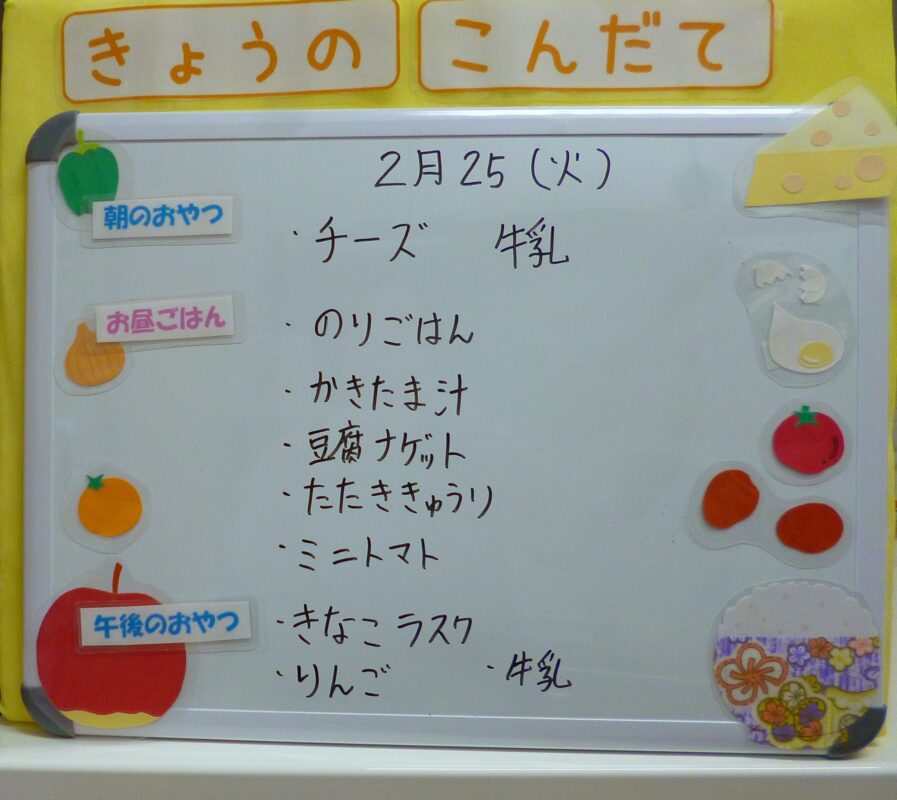 きょうの こんだて
2月25(火)
朝のおやつ
・チーズ 牛乳
お昼ごはん
・のりごはん
・かきたま汁
・豆腐ナゲット
・たたききゅうり
・ミニトマト
午後のおやつ
・きなこラスク
・りんご ・牛乳